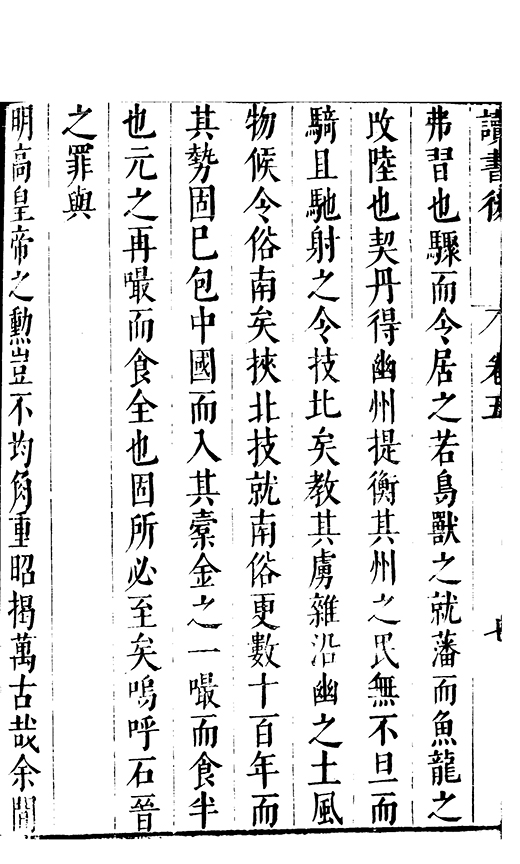 讀書後 卷五 七
弗習也驟而令居之若鳥獸之就藩而魚龍之
改陸也契丹得幽州提衡其州之民無不旦而
騎且馳射之令技北矣教其虜雜沿幽之土風
物候令俗南矣挾北技就南俗更數十百年而
其勢固已包中國而入其橐金之一嘬而食半
也元之再嘬而食全也固所必至矣嗚呼石晉
之罪與
明高皇帝之勲豈不均角重昭揭萬古哉余間